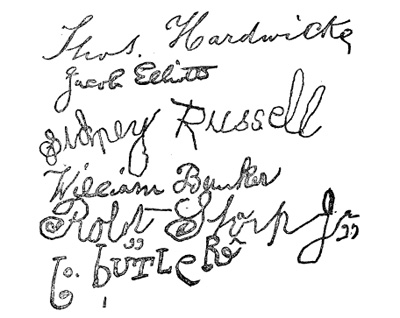 Thos. Hardwicke
Jacob Elliott
Sidney Russell
William Bunker
Robt Storp Jr
G. BUTLER